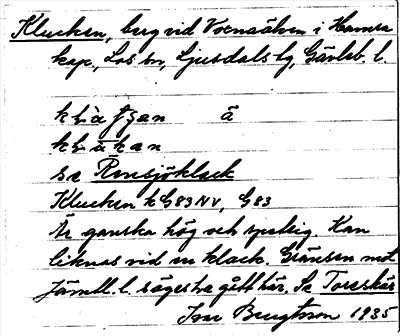 Klucken, berg vid Voxnaälven i Hamra
kap., Los sn, Ljusdals tg, Gävleb. l.
å
se Rensjöklack
Klucken kG83NV, G83
Är ganska hög och spetsig. Kan
liknas vid en klack. Gränsen mot
Jämtl. l. säges ha gått här. Se Toreskär
Ivar Bengtsson 1935